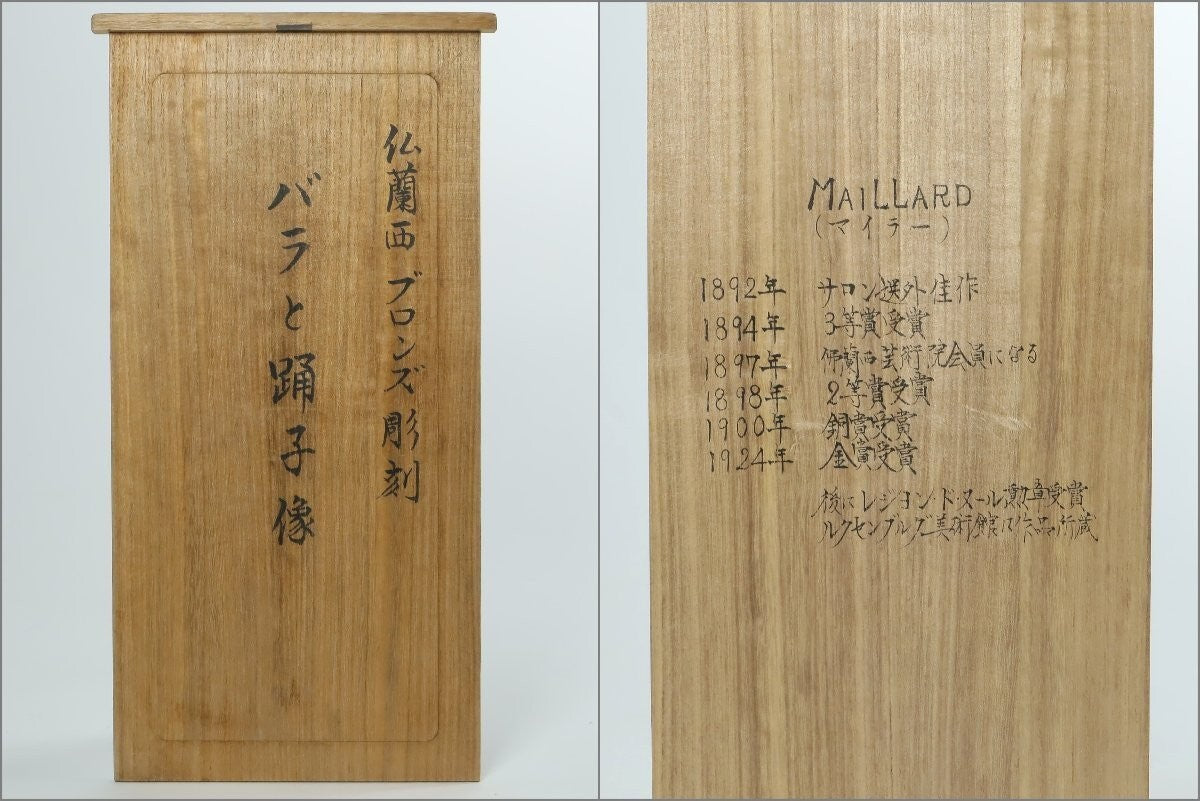 仏蘭西 ブロンズ彫刻
バラと踊子像
MAILLARD
(マイラー)
1892年 サロン選外佳作
1894年 3等賞受賞
1897年 仏蘭西芸術院会員になる
1898年 2等賞受賞
1900年 銅賞受賞
1924年 金賞受賞
後にレジヨン・ド・ヌール勲章受賞
ルクセンブルグ美術館に作品所蔵